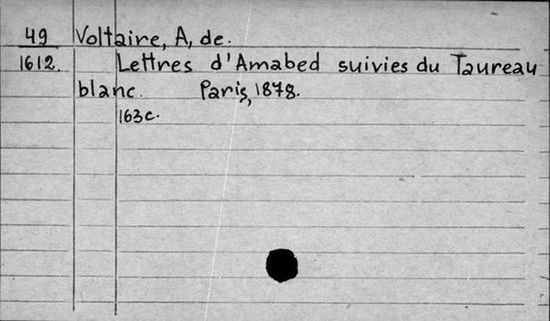 49 Voltaire, A, de.
1612. Lettres d'Amabed suivies du Taureau
blanc. Paris, 1878.
163c.